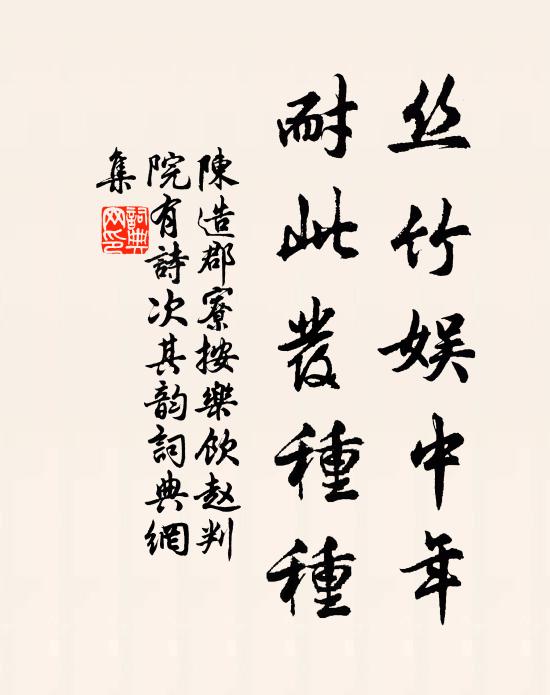 丝竹娱中年
耐此发種種
陳造郡寮按樂飲赵判
院有詩次其韵詞典網
集
詞典网印